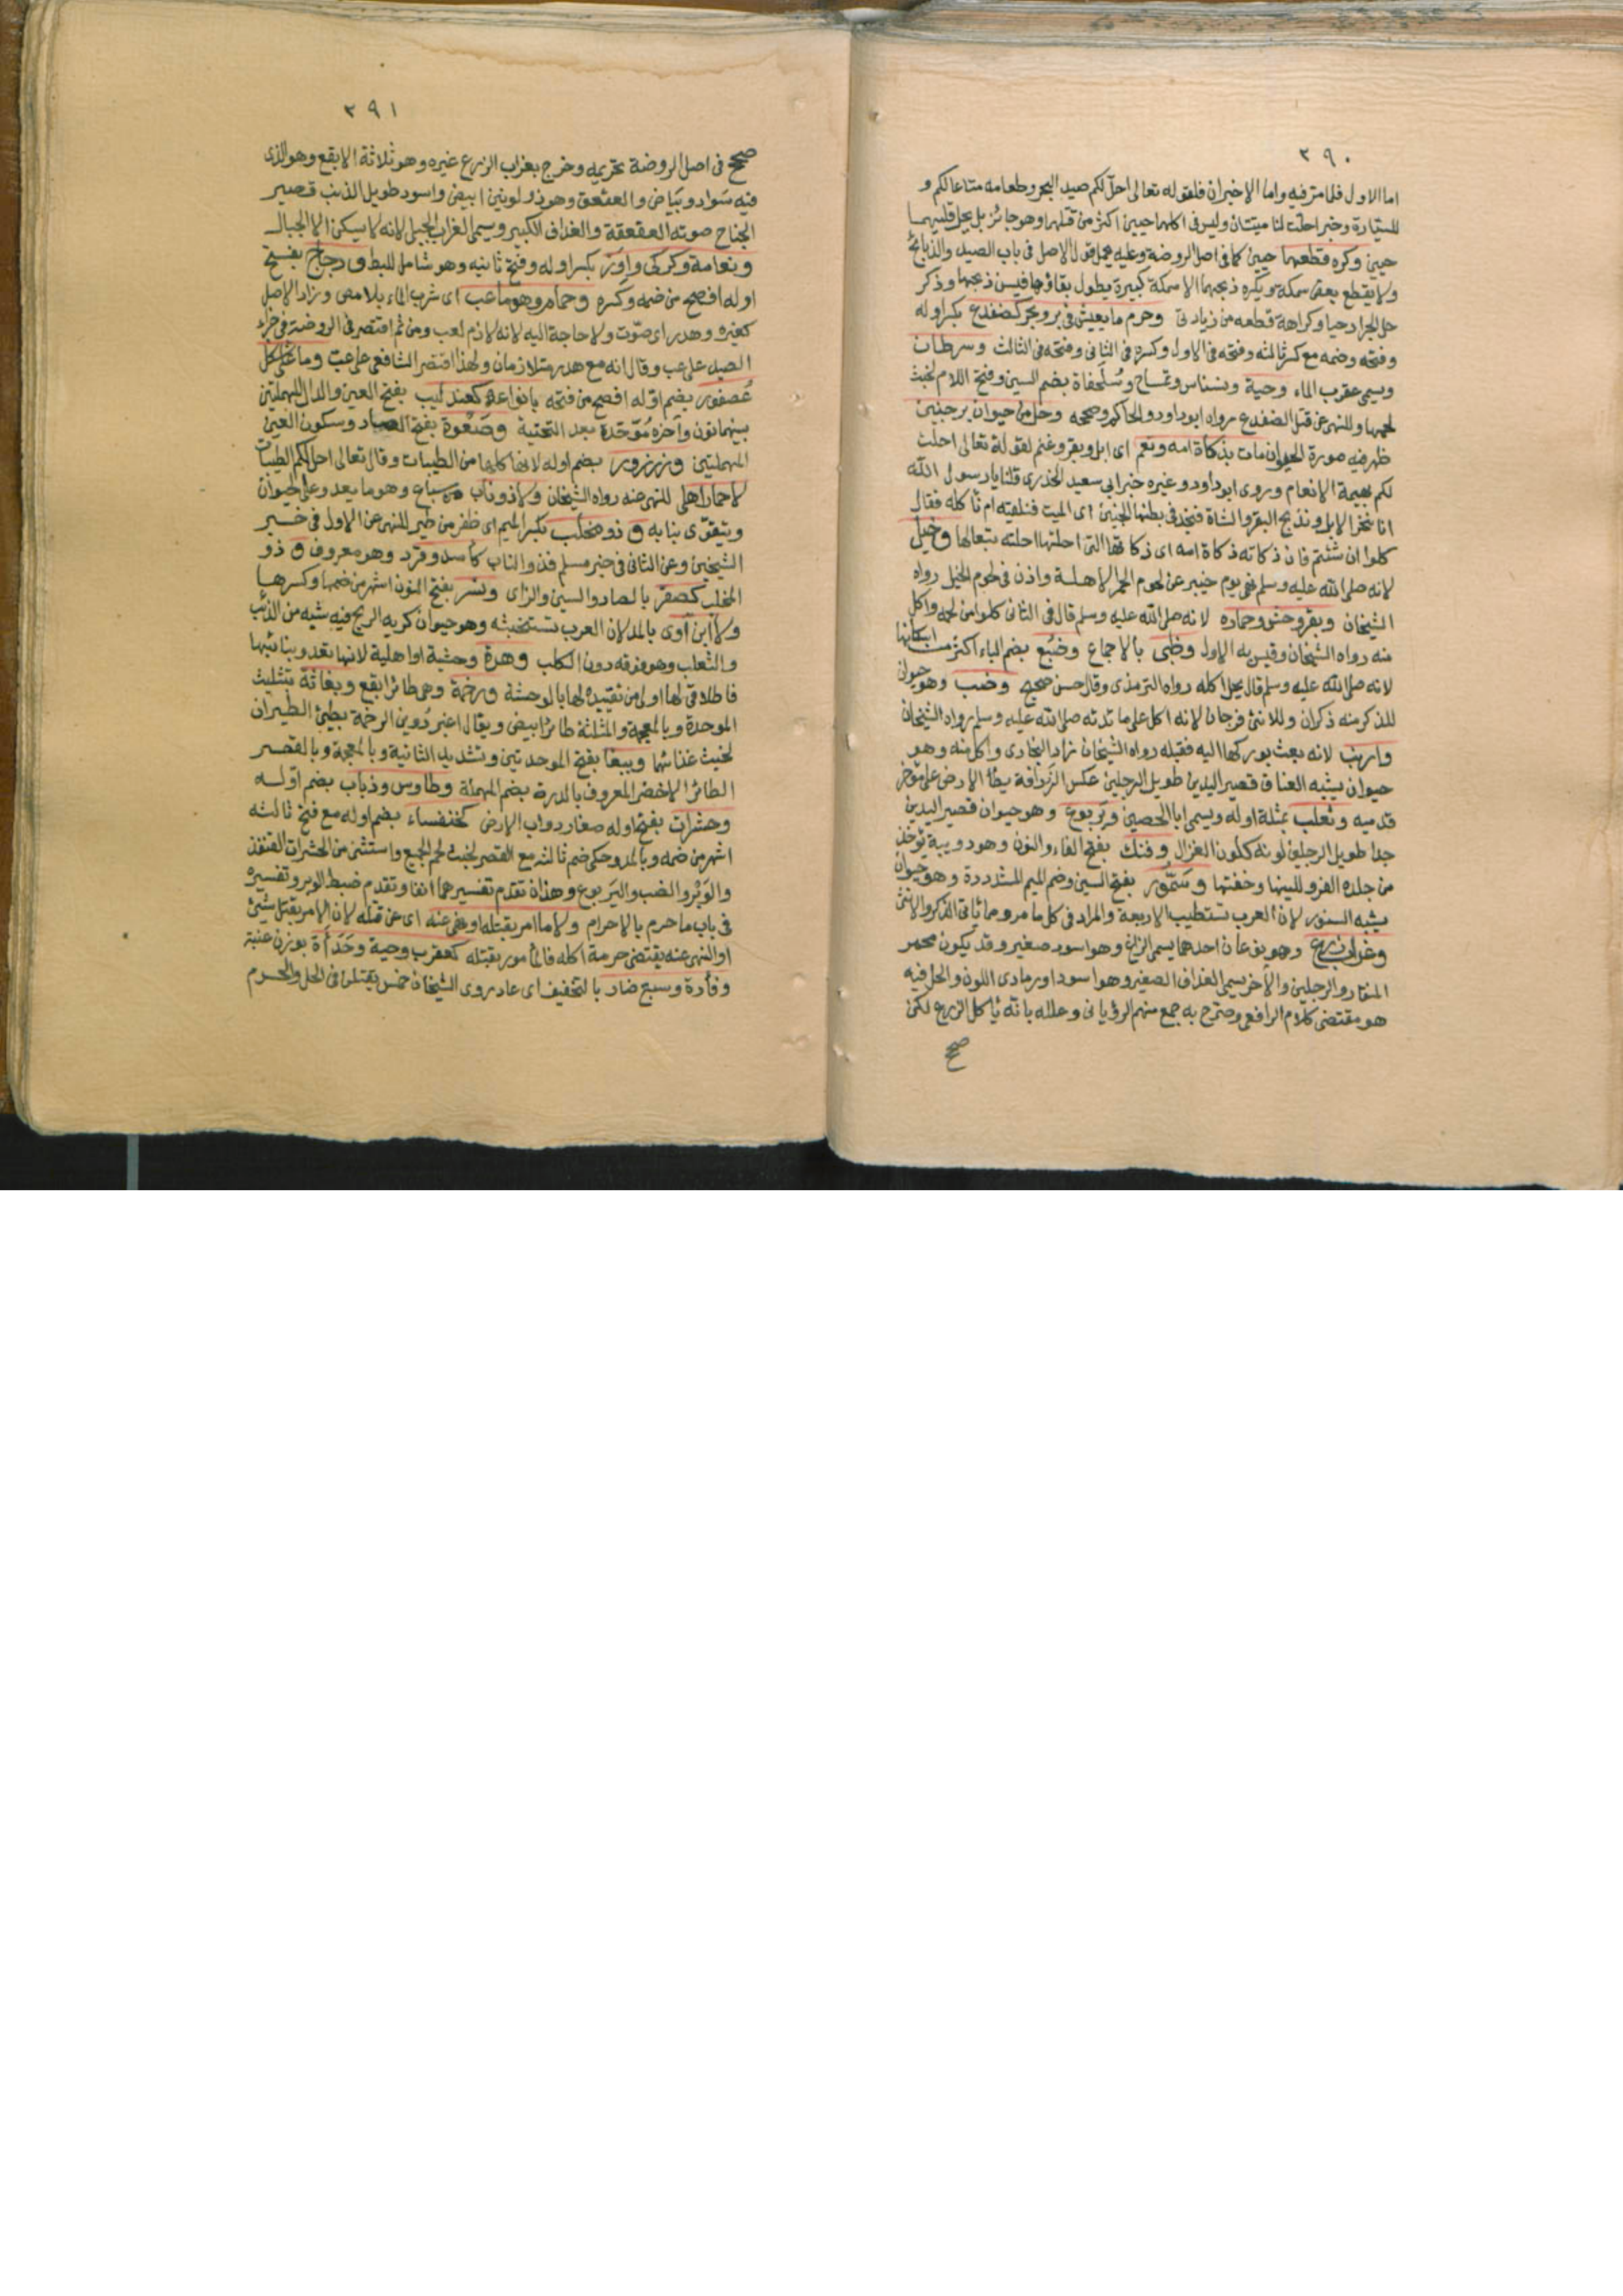 ٣٩٠
اما الاول فلما مر فيه واما الاخيران فلقوله تعالى احل لكم صيد البحر وطعامه متاعا لكم و
للسيارة وخبر احلت لنا ميتتان وليس في اكلهما حيين اكثر من قتلهما وهو جائز بل يحل قليهما
حيين وكره قطعهما حيين كما في اصل الروضة وعليه يحمل قول الاصل في باب الصيد والذبائح
ولا يقطع بعض سمكة ويكره ذبحهما الا سمكة كبيرة يطول بقاؤها فيسن ذبحها وذكر
حل الجراد حيا وكراهة قطعه من زيادتي وحرم ما يعيش في بر وبحر كضفدع بكسر اوله
وفتحه وضمه مع كسر ثالثه وفتحه في الاول وكسره في الثاني وفتحه في الثالث وسرطان
ويسمى عقرب الماء وحية ونسناس وتمساح وسلحفاة بضم السين وفتح اللام لخبث
لحمها وللنهي عن قتل الضفدع رواه ابو داود والحاكم وصححه وحل من حيوان بر جنين
ظهر فيه صورة الحيوان مات بذكاة امه ونعم اي ابل وبقر وغنم لقوله تعالى احلت
لكم بهيمة الانعام وروى ابو داود وغيره خبر ابي سعيد الخذري قلنا يا رسول الله
انا ننحر الابل ونذبح البقر والشاة فنجد في بطنها الجنين اي الميت فنلقيه ام نأكله فقال
كلوا ان شئتم فان ذكاته ذكاة امه اي ذكاتها التي احلتها احلته تبعا لها وخيل
لانه صلى الله عليه وسلم نهى يوم خيبر عن لحوم الحمر الاهلية واذن في لحوم الخيل رواه
الشيخان وبقر وحش وحماره لانه صلى الله عليه وسلم قال في الثاني كلوا من لحمه واكل
منه رواه الشيخان وقيس به الاول وظبي بالاجماع وضبع بضم الباء اكثر من اسكانها
لانه صلى الله عليه وسلم قال يحل اكله رواه الترمذي وقال حسن صحيح وضب وهو حيوان
للذكر منه ذكران وللانثى فرجان لانه اكل على مائدته صلى الله عليه وسلم رواه الشيخان
وارنب لانه بعث بوركها اليه فقبله رواه الشيخان زاد البخاري واكل منه وهو
حيوان يشبه العناق قصير اليدين طويل الرجلين عكس الزرافة يطأ الارض على مؤخر
قدميه وثعلب بمثلثة اوله ويسمى ابا الحصين ويربوع وهو حيوان قصير اليدين
جدا طويل الرجلين لونه كلون الغزال وفنك بفتح الفاء والنون وهو دويبة يؤخذ
من جلده الفرو للينها وخفتها وسمور بفتح السين وضم الميم المشددة وهو حيوان
يشبه السنور لان العرب تستطيب الاربعة والمراد في كل ما مر ومما يأتي الذكر والانثى
وغراب زرع وهو نوعان احدهما يسمى الزاغ وهو اسود صغير وقد يكون محمر
المنقار والرجلين والآخر يسمى الغذاف الصغير وهو اسود او رمادي اللون والحل فيه
هو مقتضى كلام الرافعي وصرح به جمع منهم الرؤياني وعلله بانه يأكل الزرع لكن
صحح
٣٩١
صحح في اصل الروضة تحريمه وخرج بغراب الزرع غيره وهو ثلاثة الابقع وهو الذي
فيه سواد وبياض والعقعق وهو ذو لونين ابيض واسود طويل الذنب قصير
الجناح صوته العقعقة والغداف الكبير ويسمى الغراب الجبلي لانه لا يسكن الا الجبال
ونعامة وكركي واوز بكسر اوله وفتح ثانيه وهو شامل للبط ودجاج بفتح
اوله افصح من ضمه وكسره وحمام وهو ما عب اي شرب الماء بلا مص وزاد الاصل
كغيره وهدر اي صوت ولا حاجة اليه لانه لازم لعب ومن ثم اقتصر في الروضة في جزاء
الصيد على عب وقال انه مع هدر متلازمان ولهذا اقتصر الشافعي على عب وما على شكل
عصفور بضم اوله افصح من فتحه بانواعه كعندليب بفتح العين والدال المهملتين
بينهما نون وآخره موحدة بعد التحتية وصعوة بفتح الصاد وسكون العين
المهملتين وزرزور بضم اوله لانها كلها من الطيبات وقال تعالى احل لكم الطيبات
لا حمار اهلي للنهي عنه رواه الشيخان ولا ذو ناب من سباع وهو ما يعدو على الحيوان
ويتقوى بنابه وذو مخلب بكسر الميم اي ظفر من طير للنهي عن الاول في خبر
الشيخين وعن الثاني في خبر مسلم فذو الناب كاسد وقرد وهو معروف وذو
المخلب كصقر بالصاد والسين والزاى ونسر بفتح النون اشهر من ضمها وكسرها
ولا ابن آوى بالمد لان العرب تستخبثه وهو حيوان كريه الريح فيه شبه من الذئب
والثعلب وهو فوقه دون الكلب وهرة وحشية او اهلية لانها تعدو بنابها
فاطلاقي لها اولى من تقييده لها بالوحشية ورخمة وهي طائر ابقع وبغاثة بتثليث
الموحدة وبالمعجمة والمثلثة طائر ابيض ويقال اغبر دوين الرخمة بطيئ الطيران
لخبث غذائهما وببغا بفتح الموحدتين وتشديد الثانية وبالمعجمة وبالقصر
الطائر الاخضر المعروف بالدرة بضم المهملة وطاوس وذباب بضم اوله
وحشرات بفتح اوله صغار دواب الارض كخنفساء بضم اوله مع فتح ثالثه
اشهر من ضمه وبالمد وحكي ضم ثالثه مع القصر لخبث لحم الجميع واستثنى من الحشرات القنفذ
والوبر والضب واليربوع وهذان تقدم تفسيرهما انفا وتقدم ضبط الوبر وتفسيره
في باب ما حرم بالاحرام ولا ما امر بقتله او نهي عنه اي عن قتله لان الامر بقتل شئ
او النهي عنه يقتضي حرمة اكله فالمأمور بقتله كعقرب وحية وحدأة بوزن عنبة
وفأرة وسبع ضار بالتخفيف اي عاد روى الشيخان خمس يقتلن في الحل والحرم